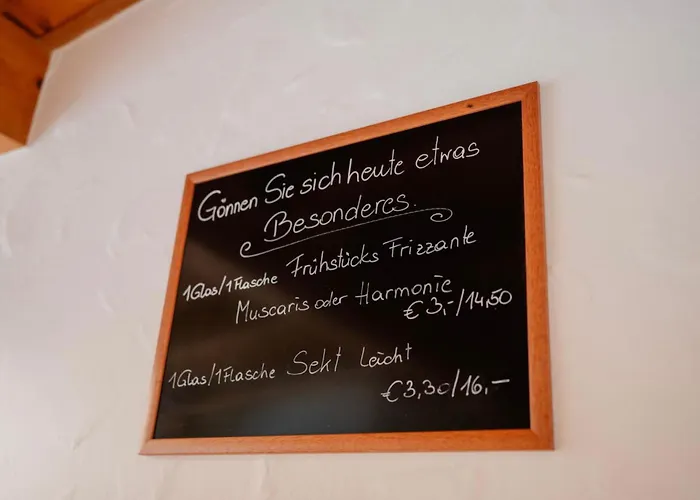 Gönnen Sie sich heute etwas
Besonderes.
1Glas/1Flasche Frühstücks Frizzante
Muscaris oder Harmonie
€ 3,-/14,50
1Glas/1Flasche Sekt Leicht
€3,30/16,-